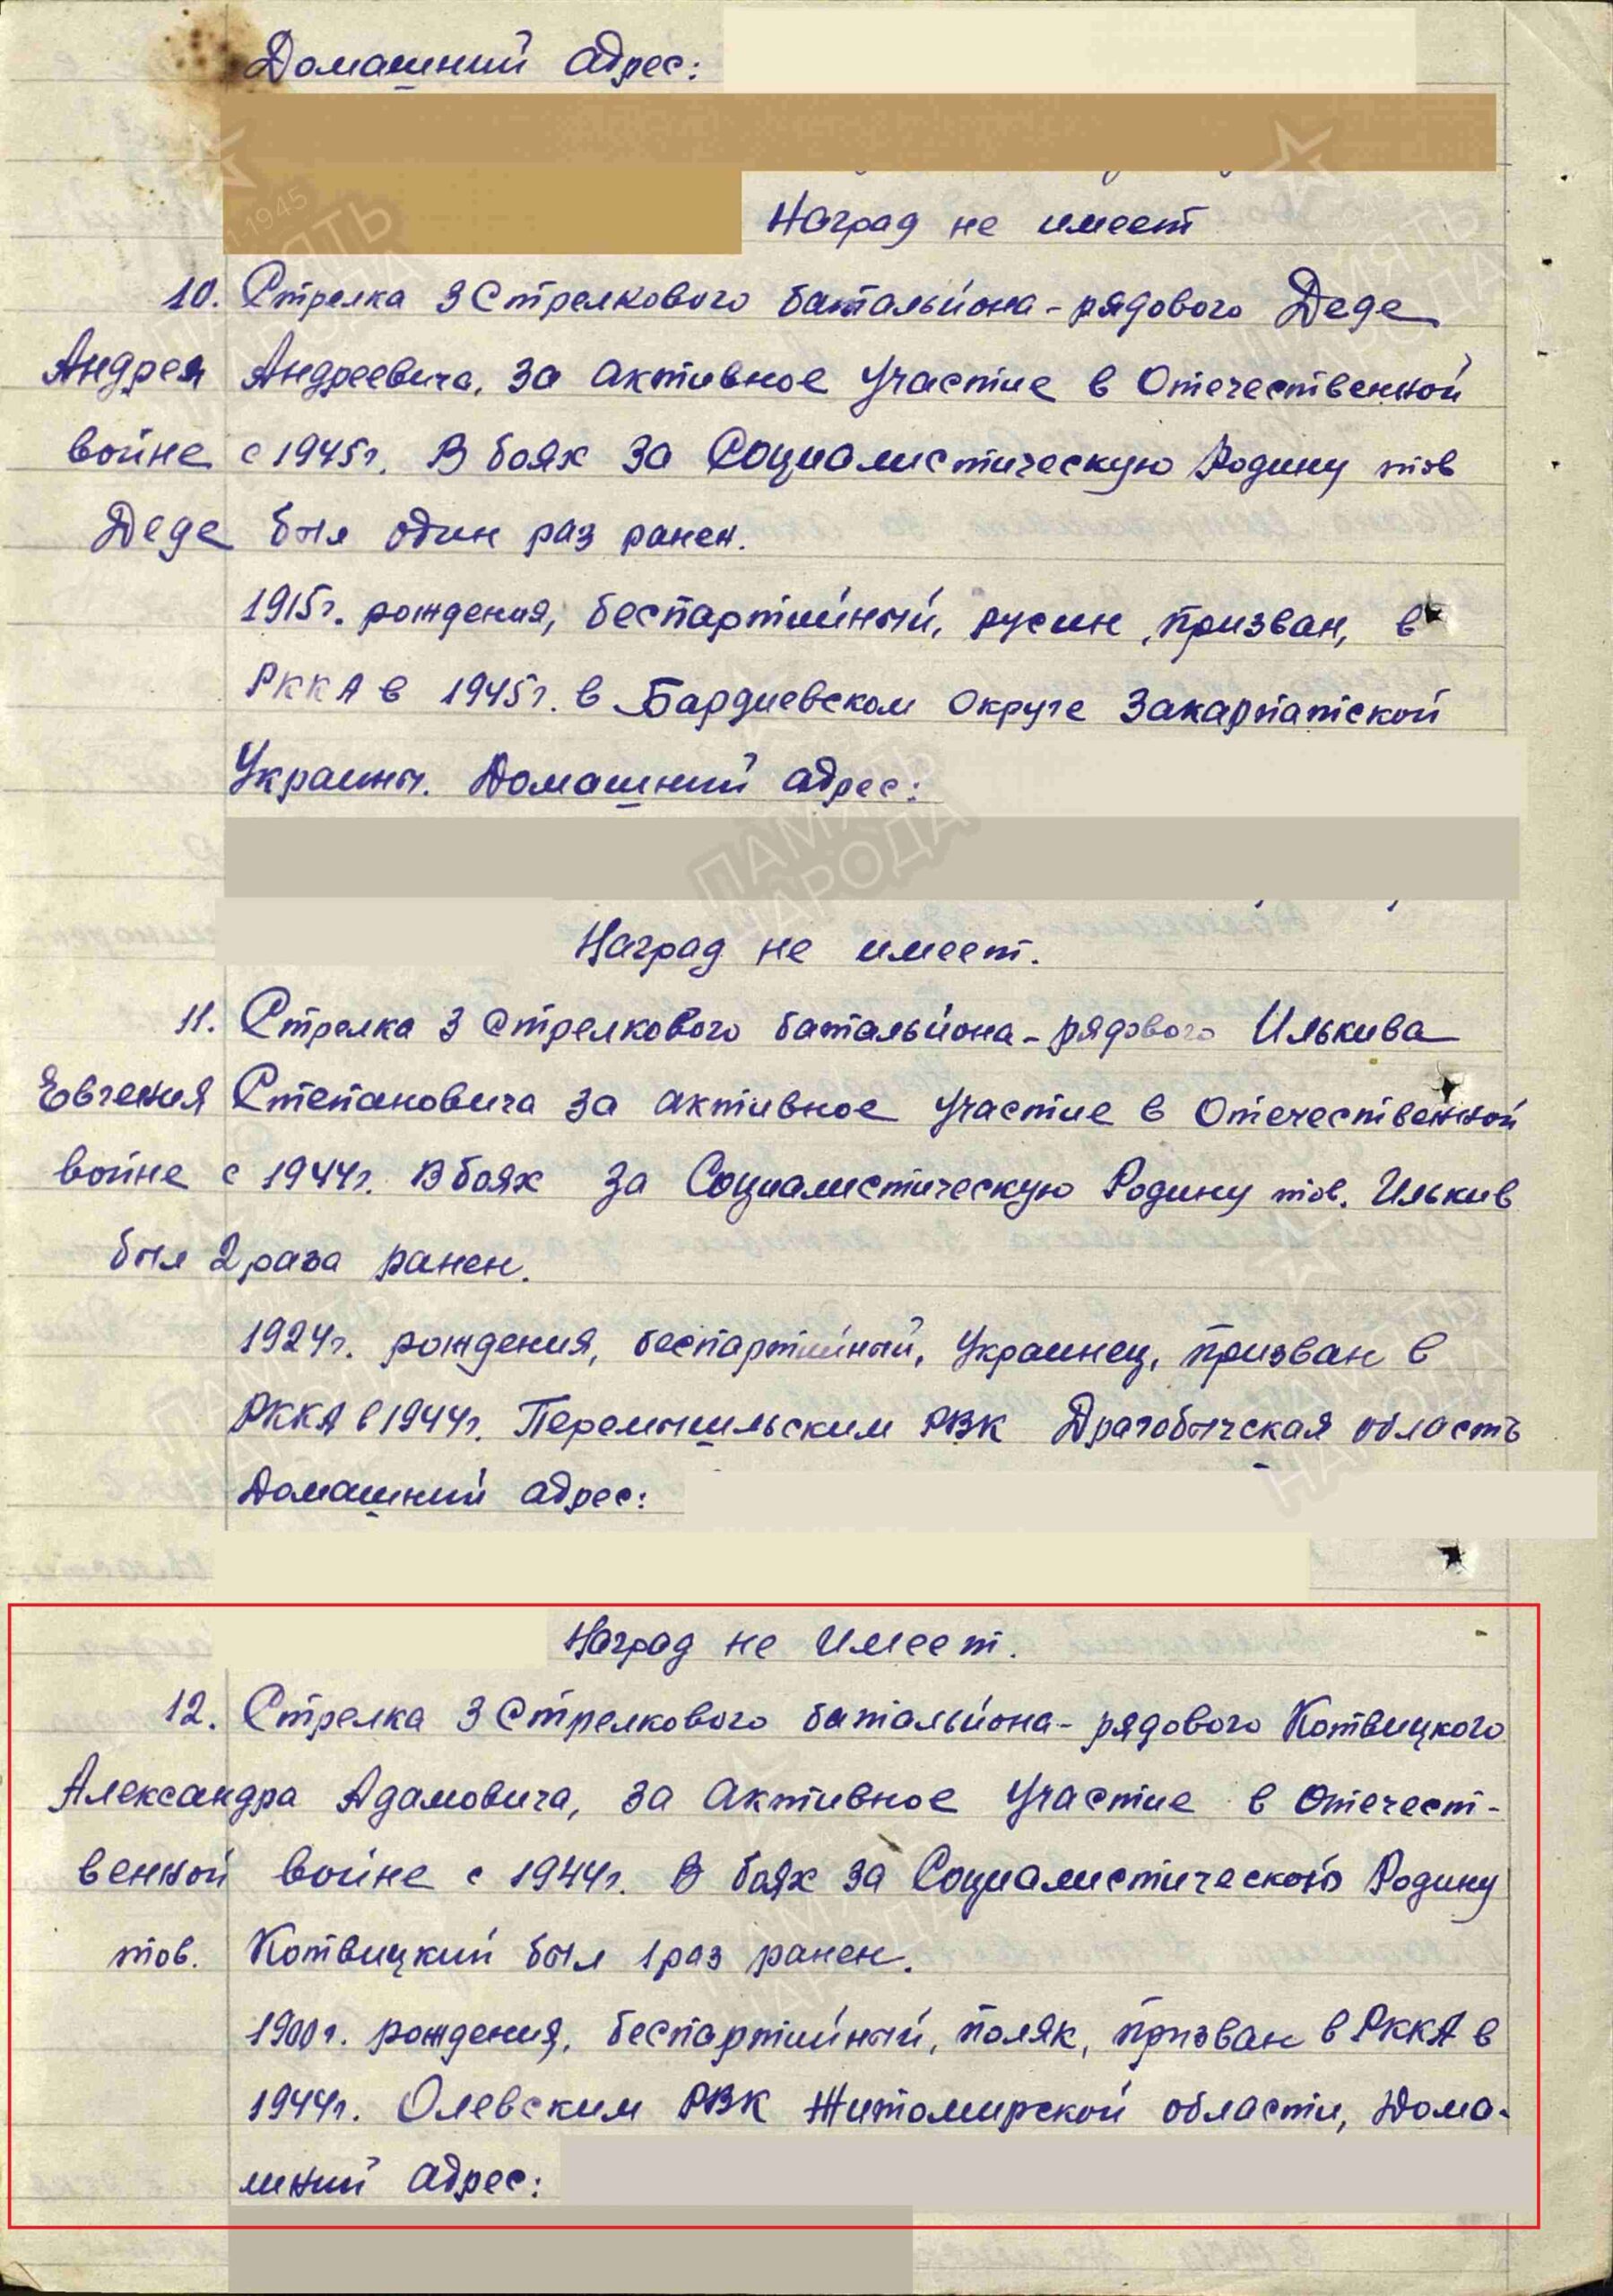 Домашний адрес:
Наград не имеет
10. Стрелка 3 Стрелкового батальйона - рядового Деде
Андрея Андреевича, за активное участие в Отечественной
войне с 1945г. В боях за Социалистическую Родину тов
Деде был один раз ранен.
1915г. рождения, беспартийный, русин, призван, в
РККА в 1945г. в Бардиевском округе Закарпатской
Украины. Домашний адрес:
Наград не имеет.
11. Стрелка 3 Стрелкового батальйона - рядового Илькива
Евгения Степановича за активное участие в Отечественной
войне с 1944г. В боях за Социалистическую Родину тов. Илькив
был 2 раза ранен.
1924г. рождения, беспартийный, Украинец, призван в
РККА в 1944г. Перемышльским РВК Драгобычская область
Домашний адрес:
Наград не Имеет.
12. Стрелка 3 Стрелкового батальйона - рядового Котвицкого
Александра Адамовича, за активное участие в Отечест-
венной войне с 1944г. В боях за Родину
тов. Котвицкий был 1 раз ранен.
1900г. рождения, беспартийный, поляк, призван в РККА в
1944г. Олевским РВК Житомирской области, Дома-
шний адрес:
ПАМЯТЬ
НАРОДА